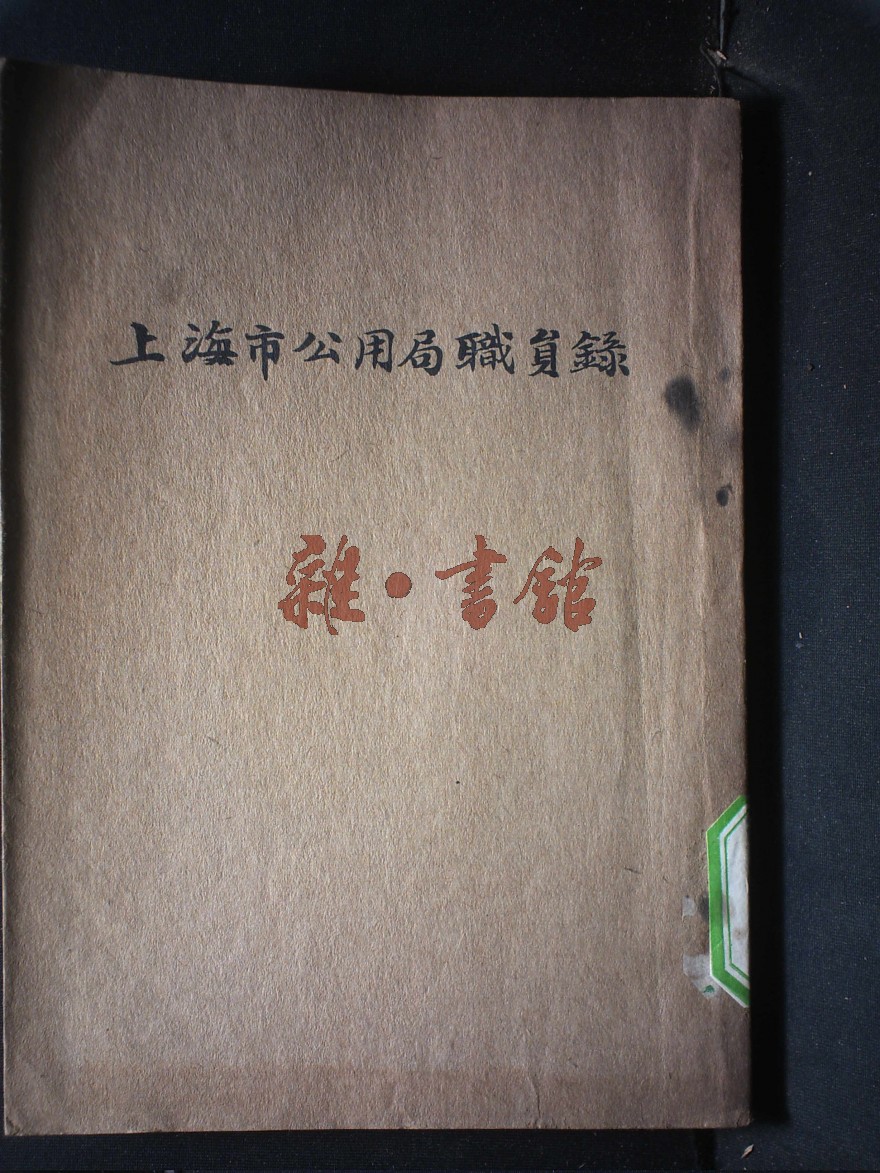 上海市公用局職員錄
雜·書館